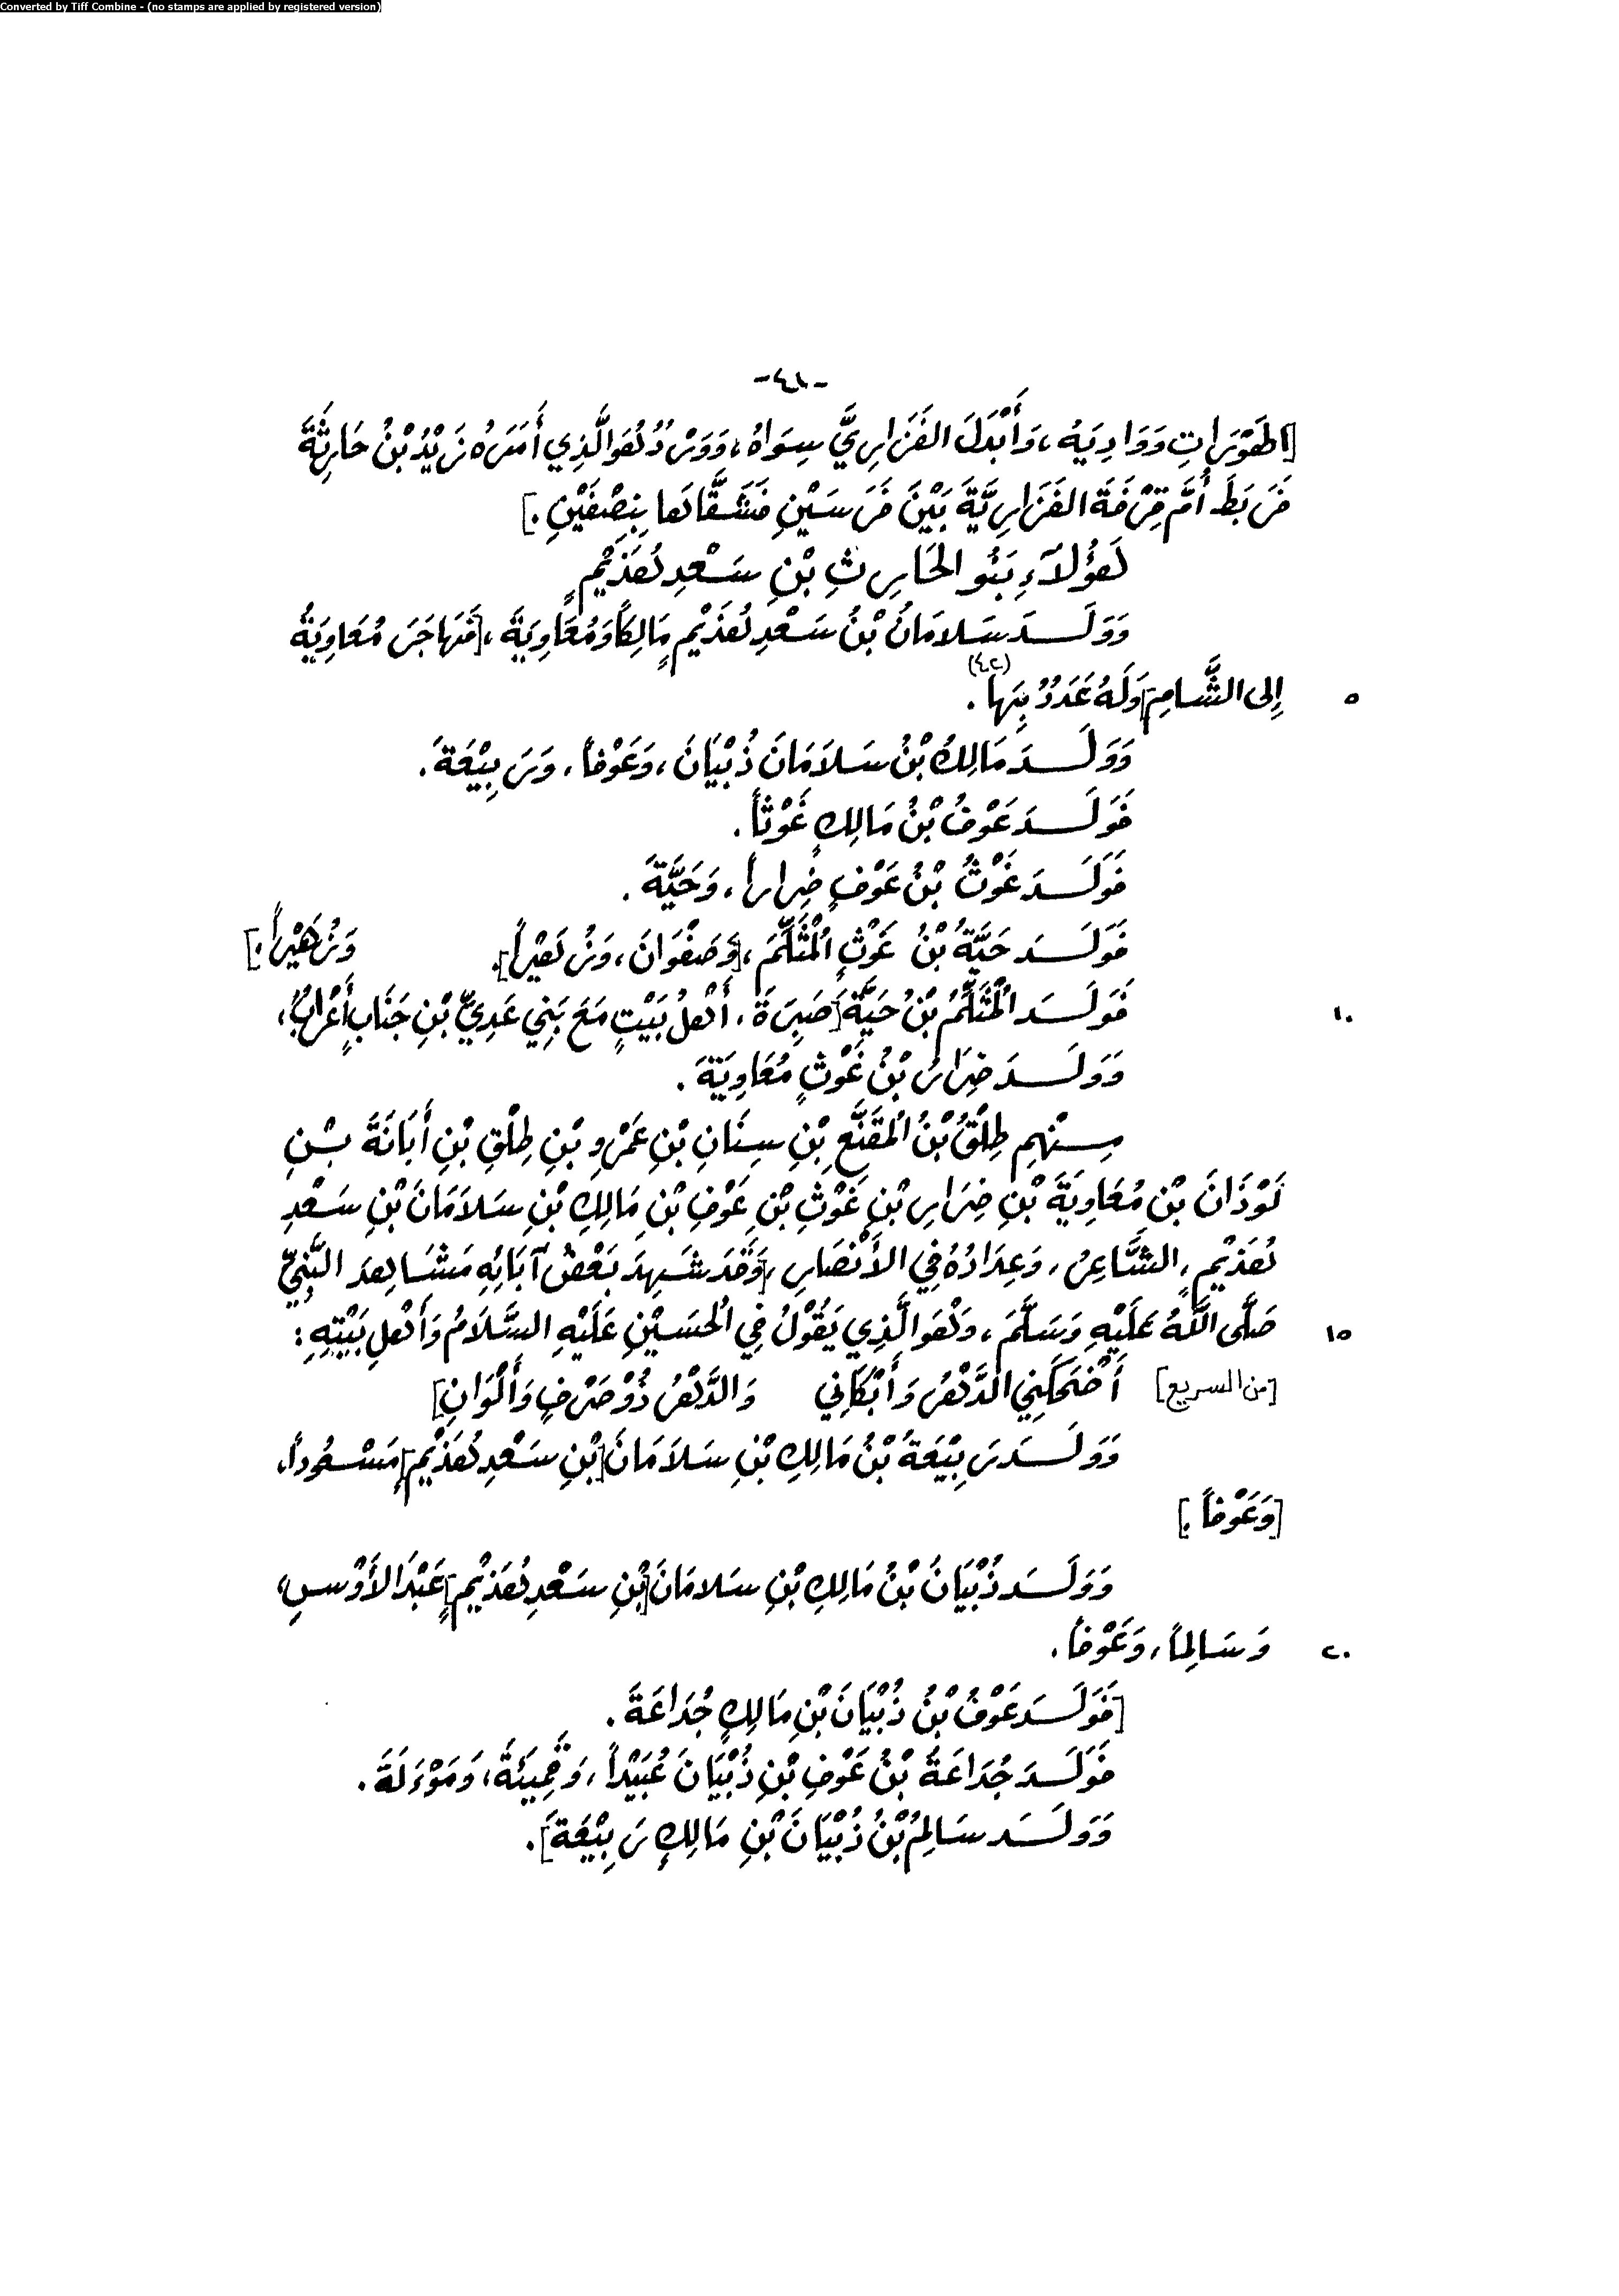 Converted by Tiff Combine - (no stamps are applied by registered version)
-٤١-
وَوَادِيَهُ، وَأَبْدَلَ الفَزَارِيَّ سِوَاهُ، وَوَرْدُ هُوَ الَّذِي أَمَرَهُ زَيْدُ بْنُ حَارِثَةَ
فَرَبَطَ أُمَّ قِرْفَةَ الفَزَارِيَّةَ بَيْنَ فَرَسَيْنِ فَشَقَّاهَا بِنِصْفَيْنِ.]
هَؤُلَاءِ بَنُو الحَارِثِ بْنِ سَعْدِ هُذَيْمٍ
وَوَلَـدَ سَلَامَانُ بْنُ سَعْدِ هُذَيْمٍ مَالِكاً وَمُعَاوِيَةَ، [فَهَاجَرَ مُعَاوِيَةُ
إِلى الشَّامِ] وَلَهُ عَدَدٌ بِهَا (٤٢).
٥
وَوَلَـدَ مَالِكُ بْنُ سَلَامَانَ ذُبْيَانَ، وَعَوْفاً، وَرَبِيْعَةَ.
فَوَلَـدَ عَوْفُ بْنُ مَالِكٍ غَوْثاً.
فَوَلَـدَ غَوْثُ بْنُ عَوْفٍ ضِرَاراً، وَحَيَّةَ.
فَوَلَـدَ حَيَّةُ بْنُ غَوْثٍ الْمُثَلَّمَ، [وَصَفْوَانَ، وَزُهَيْراً]. وَزُهَيْراً.]
فَوَلَـدَ الْمُثَلَّمُ بْنُ حَيَّةَ [صَبِرَةَ، أَهْلُ بَيْتٍ مَعَ بَنِي عَدِيِّ بْنِ جَنَابٍ أَعْرَابٌ،
١٠
وَوَلَـدَ ضِرَارُ بْنُ غَوْثٍ مُعَاوِيَةَ.
مِـنْهِم طِلْقُ بْنُ الْمُقَنَّعِ بْنِ سِنَانِ بْنِ عَمْرِو بْنِ طِلْقِ بْنِ أَبَانَةَ بْـنِ
لَوْذَانَ بْنِ مُعَاوِيَةَ بْنِ ضِرَارِ بْنِ غَوْثِ بْنِ عَوْفِ بْنِ مَالِكِ بْنِ سَلَامَانَ بْنِ سَعْدِ
هُذَيْمٍ، الشَّاعِرُ، وَعِدَادُهُ فِي الأَنْصَارِ، [وَقَدْ شَهِدَ بَعْضُ آبَائِهِ مَشَاهِدَ النَّبِيِّ
صَلَّى اللَّهُ عَلَيْهِ وَسَلَّمَ، وَهُوَ الَّذِي يَقُوْلُ فِي الْحُسَيْنِ عَلَيْهِ السَّلَامُ وَأَهْلِ بَيْتِهِ:
١٥
[من السريع] أَضْحَكَنِي الدَّهْرُ وَأَبْكَانِي وَالدَّهْرُ ذُوْ صَرْفٍ وَأَلْوَانِ]
وَوَلَـدَ رَبِيْعَةُ بْنُ مَالِكِ بْنِ سَلَامَانَ [بْنِ سَعْدِ هُذَيْمٍ] مَسْعُوداً،
[وَعَوْفاً.]
وَوَلَـدَ ذُبْيَانُ بْنُ مَالِكِ بْنِ سَلَامَانَ [بْنِ سَعْدِ هُذَيْمٍ] عَبْدَ الأَوْسِ،
وَسَالِماً، وَعَوْفاً.
٢٠
[فَوَلَـدَ عَوْفُ بْنُ ذُبْيَانَ بْنِ مَالِكٍ جُدَاعَةَ.
فَوَلَـدَ جُدَاعَةُ بْنُ عَوْفِ بْنِ ذُبْيَانَ عُبَيْداً، وَقَمِيئَةَ، وَمَوْءَلَةَ.
وَوَلَـدَ سَالِمُ بْنُ ذُبْيَانَ بْنِ مَالِكٍ رَبِيْعَةَ].